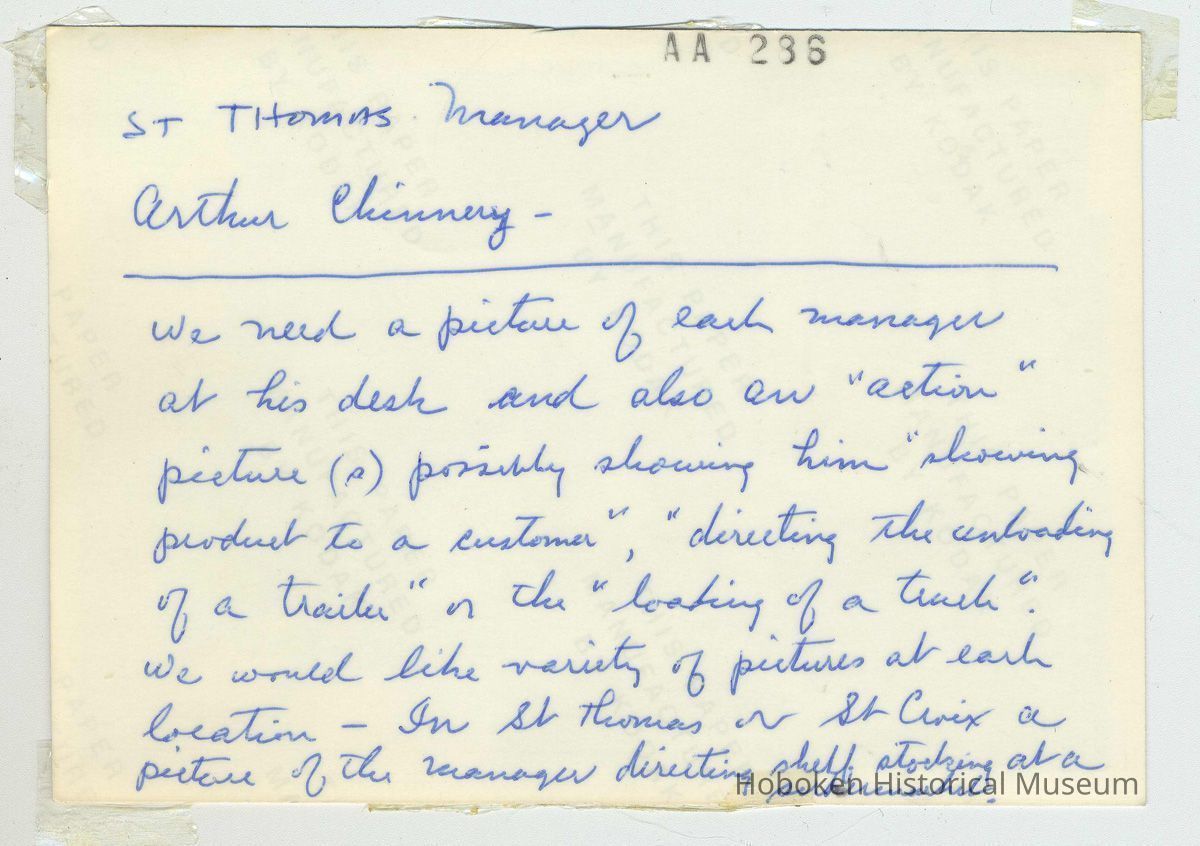 AA 286
ST THOMAS Manager
Arthur Chinnery -
We need a picture of each manager
at his desk and also an "action"
picture (s) possibly showing him "showing
product to a customer", "directing the unloading
of a trailer" or the "loading of a truck".
We would like variety of pictures at each
location - In St Thomas or St Croix a
picture of the manager directing shelf stocking at a
Hoboken Historical Museum
THIS PAPER
MANUFACTURED
BY KODAK